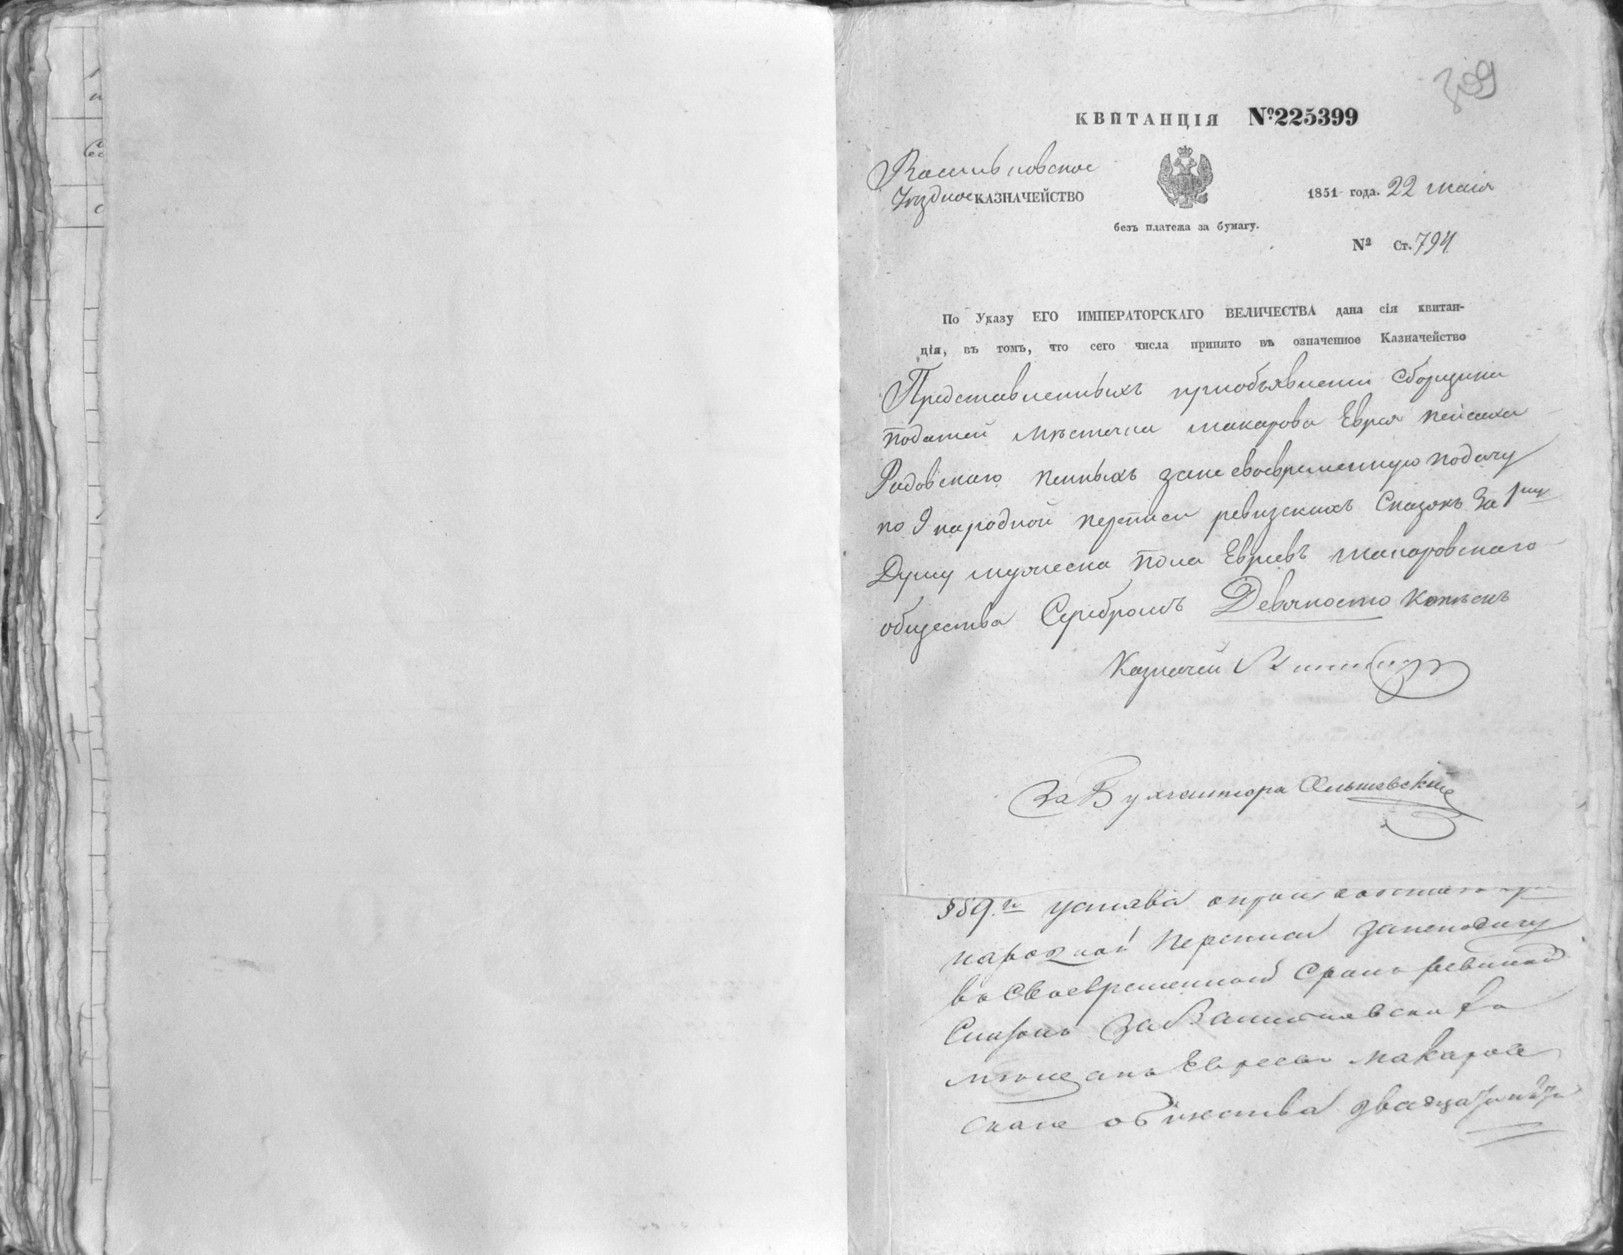 309
КВИТАНЦІЯ №225399
Васильковское
Уѣздное КАЗНАЧЕЙСТВО
1851 года. 22 маія
безъ платежа за бумагу.
№ Ст. 794
По Указу ЕГО ИМПЕРАТОРСКАГО ВЕЛИЧЕСТВА дана сія квитан-
ція, въ томъ, что сего числа принято въ означенное Казначейство
Представленныхъ приобъявлении сборщика
податей мѣстечка Макарова Еврея Пейсаха
Радовскаго пенныхъ зане своевременную подачу
по 9 народной переписи ревизскихъ Сказокъ за 1ну
Душу мужеска пола Евреевъ Макаровскаго
общества Серебромъ Девяносто копѣекъ
Казначей
За Бухгалтера
§59.й устава
народной переписи занеподачу
во своевременный срокъ ревизкой
Сказокъ за
мѣщанъ Евреевъ Макаров
скаго общества